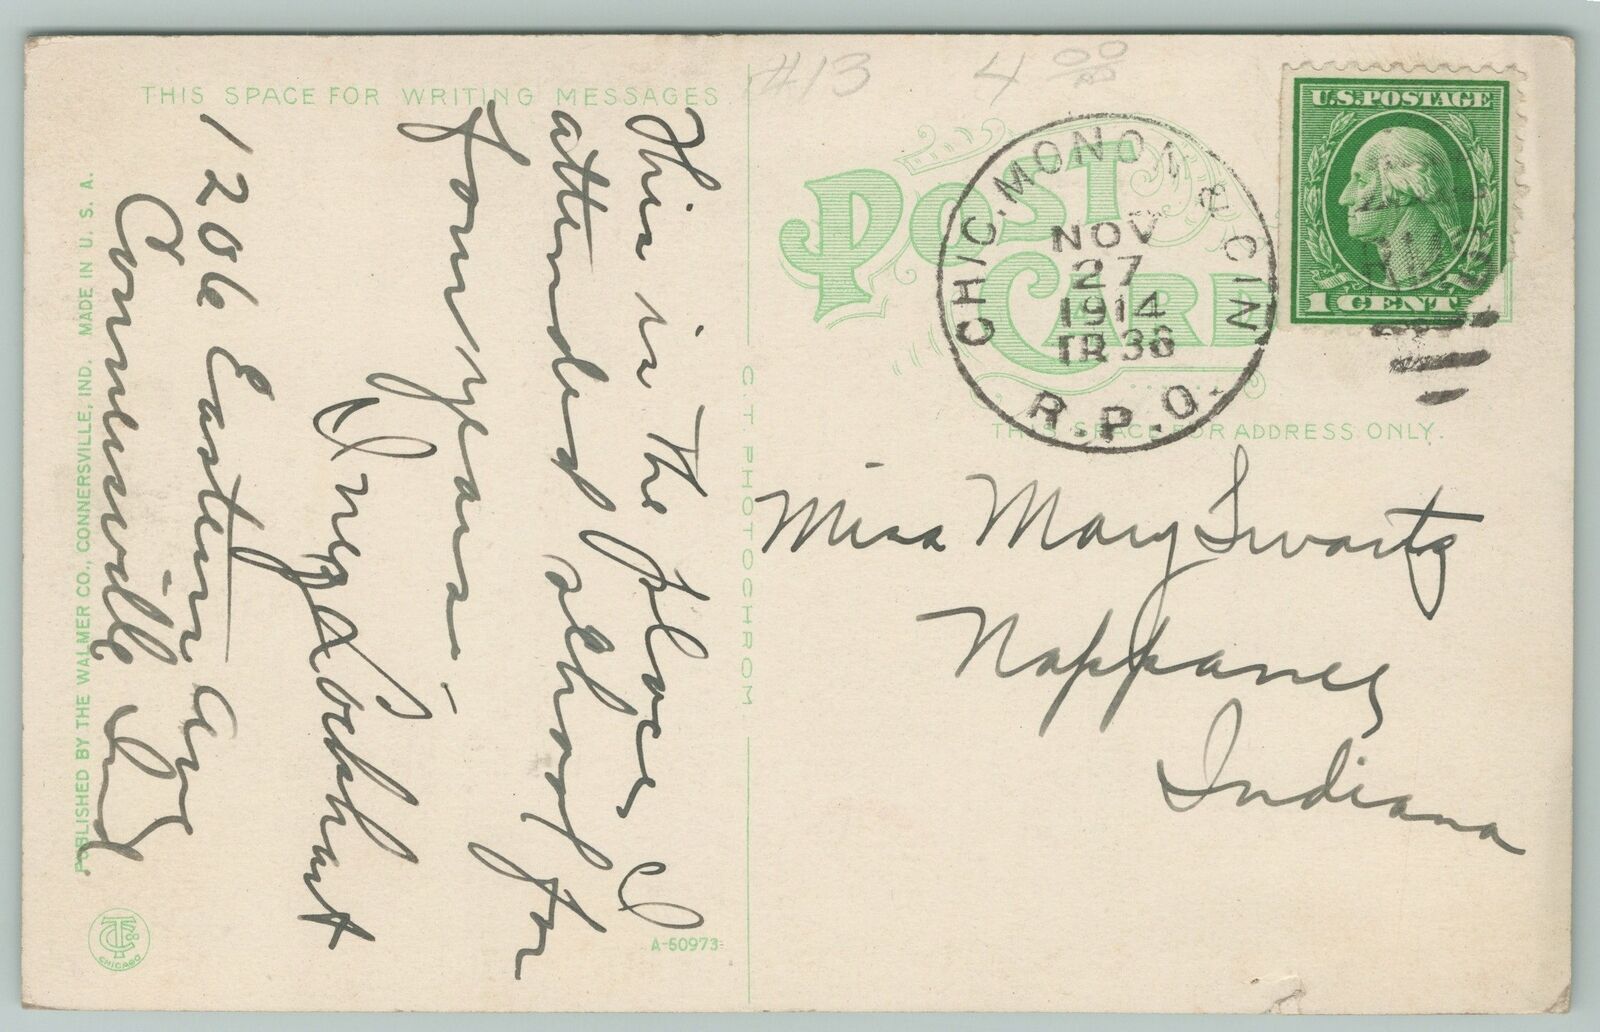 #13 4 00
THIS SPACE FOR WRITING MESSAGES
This is the place I
attended school for
four years.
Inez Lockhart
1206 Eastern Ave
Connersville Ind
PUBLISHED BY THE WALMER CO., CONNERSVILLE, IND. MADE IN U. S. A.
CHICAGO
C. T. PHOTOCHROM
A-50973
POST CARD
THIS SPACE FOR ADDRESS ONLY.
CHIC. MONON & CIN
NOV
27
1914
TR 36
R.P.O.
U.S. POSTAGE
1 CENT
Miss Mary Swartz
Nappanee
Indiana